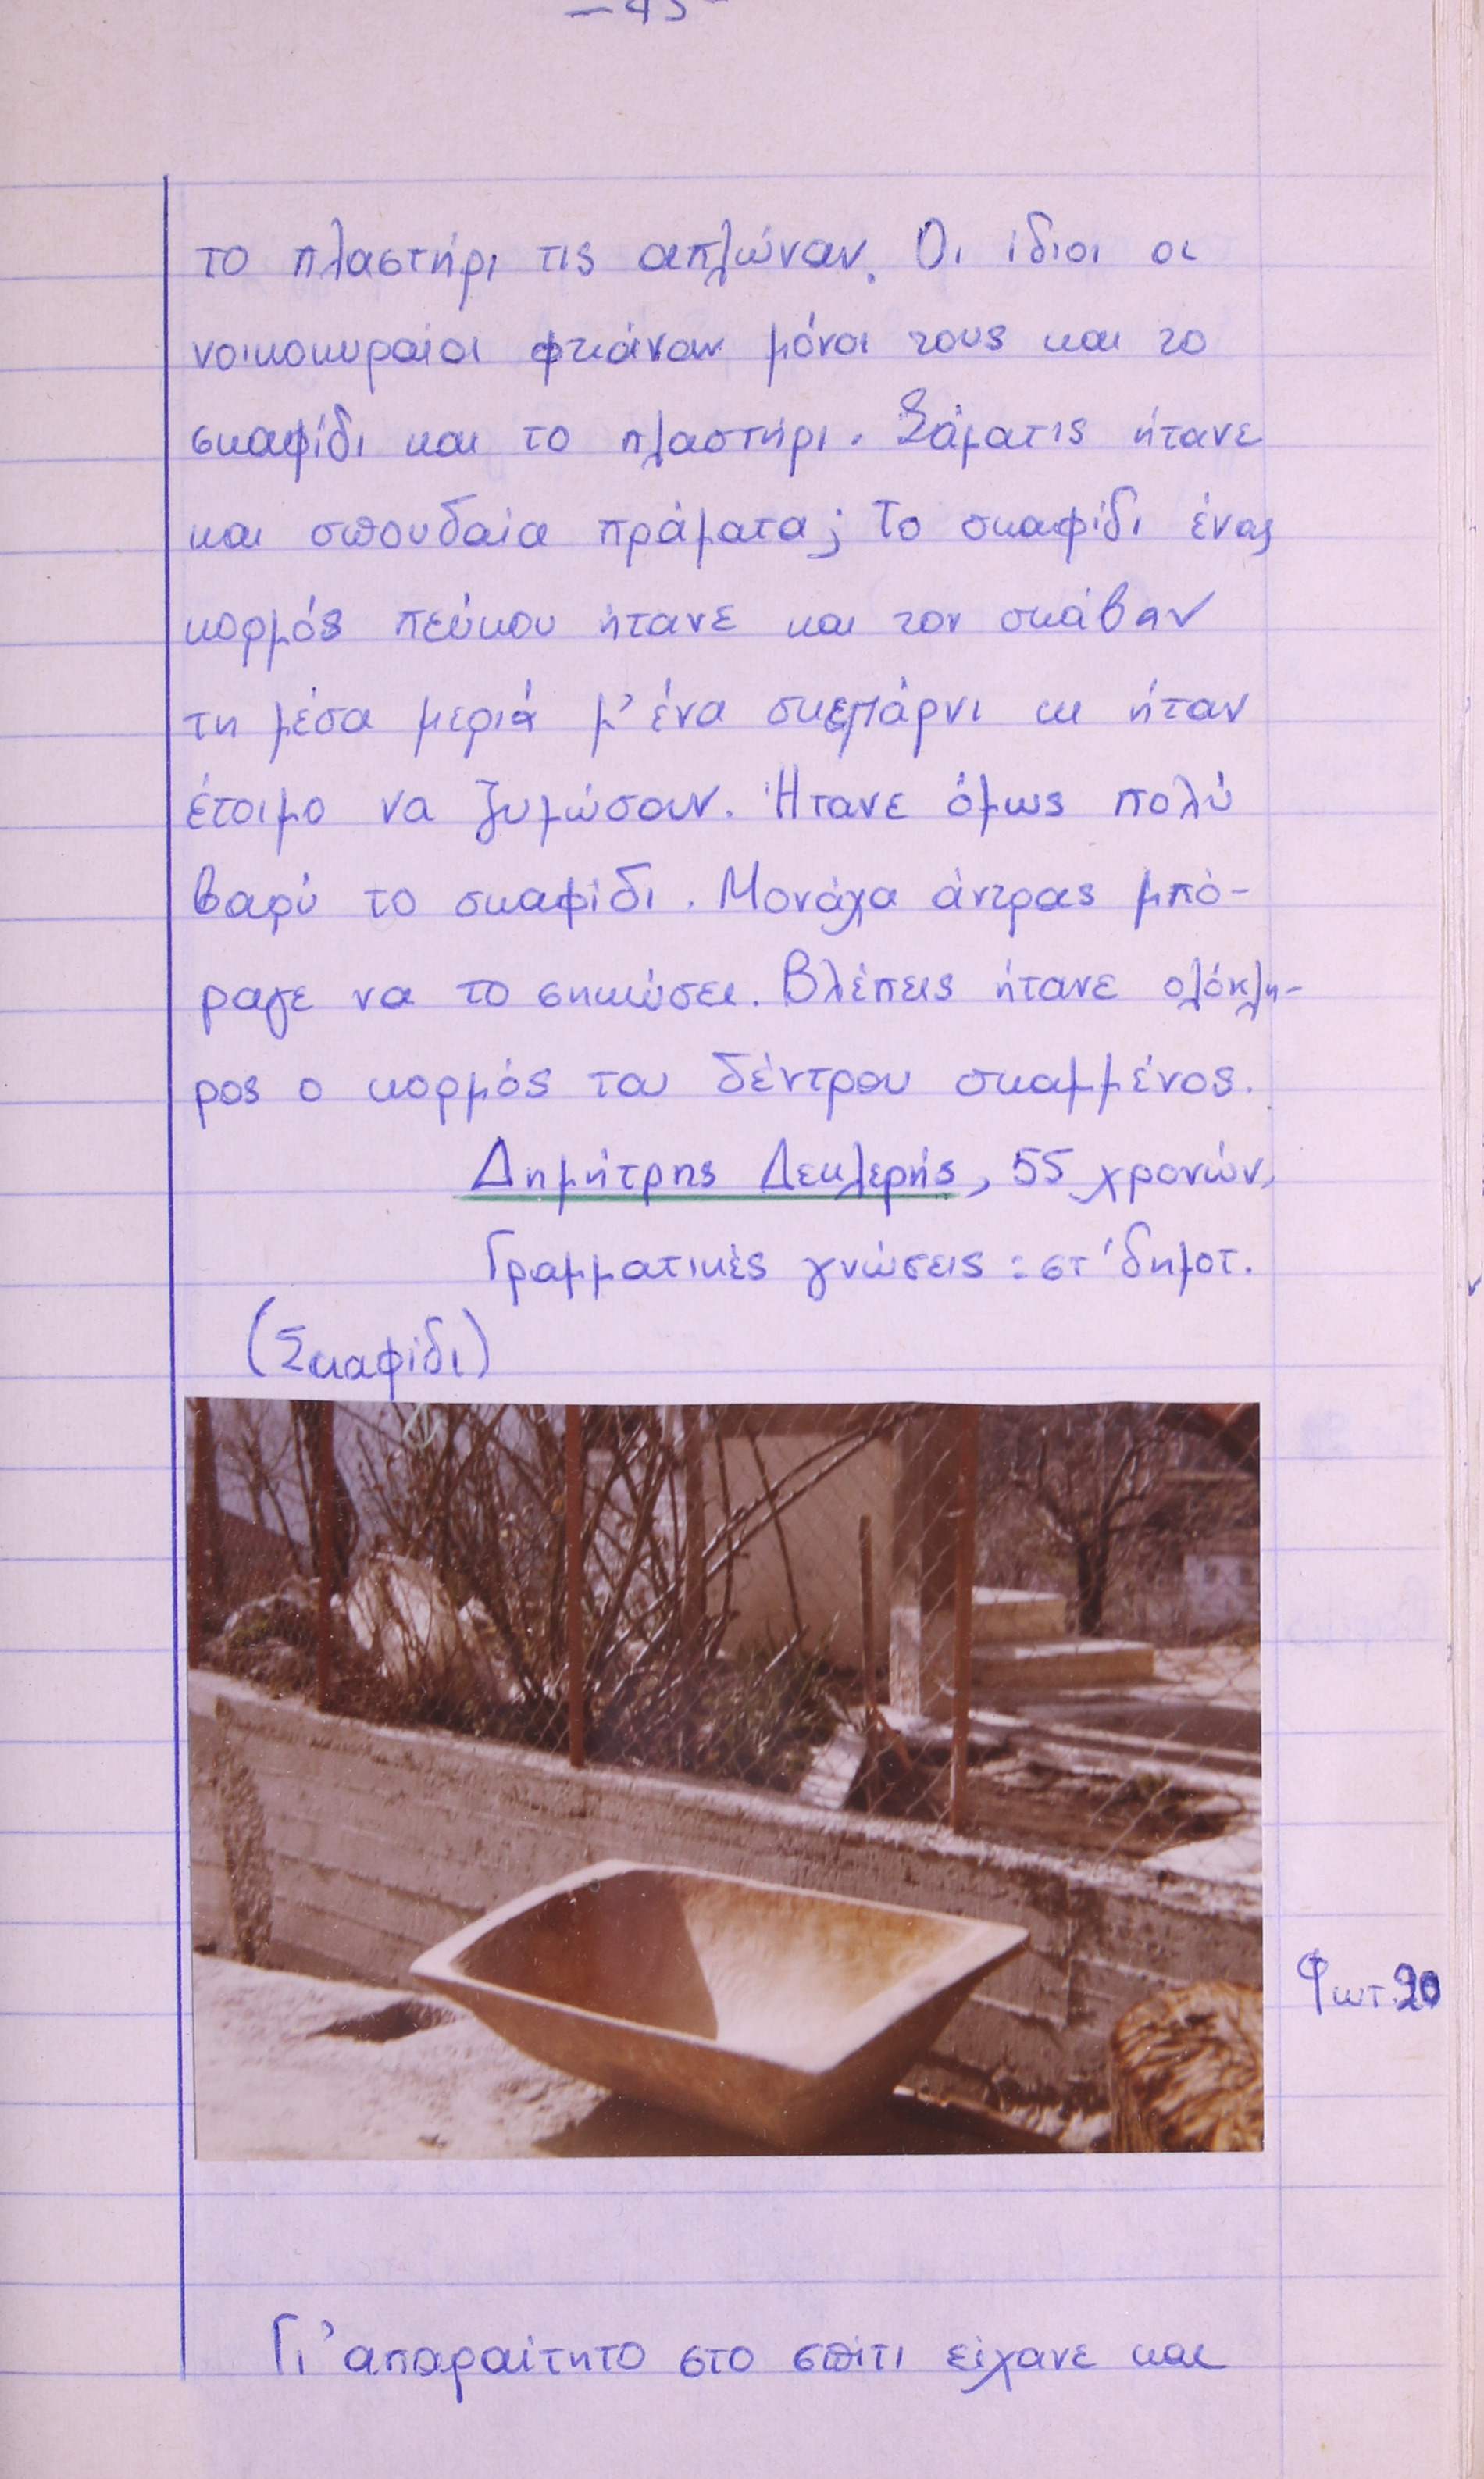 το πλαστήρι τις απλώναν. Οι ίδιοι οι
νοικοκυραίοι φτιάναν μόνοι τους και το
σκαφίδι και το πλαστήρι. Σάματις ήτανε
και σπουδαία πράματα; Το σκαφίδι ένας
κορμός πεύκου ήτανε και τον σκάβαν
τη μέσα μεριά μ' ένα σκεπάρνι κι ήταν
έτοιμο να ζυμώσουν. Ήτανε όμως πολύ
βαρύ το σκαφίδι. Μονάχα άντρας μπό-
ραγε να το σηκώσει. Βλέπεις ήτανε ολόκλη-
ρος ο κορμός του δέντρου σκαμμένος.
Δημήτρης Δεκλερής, 55 χρονών,
Γραμματικές γνώσεις: στ' δημοτ.
(Σκαφίδι)
Φωτ. 20
Γι' απαραίτητο στο σπίτι είχανε και